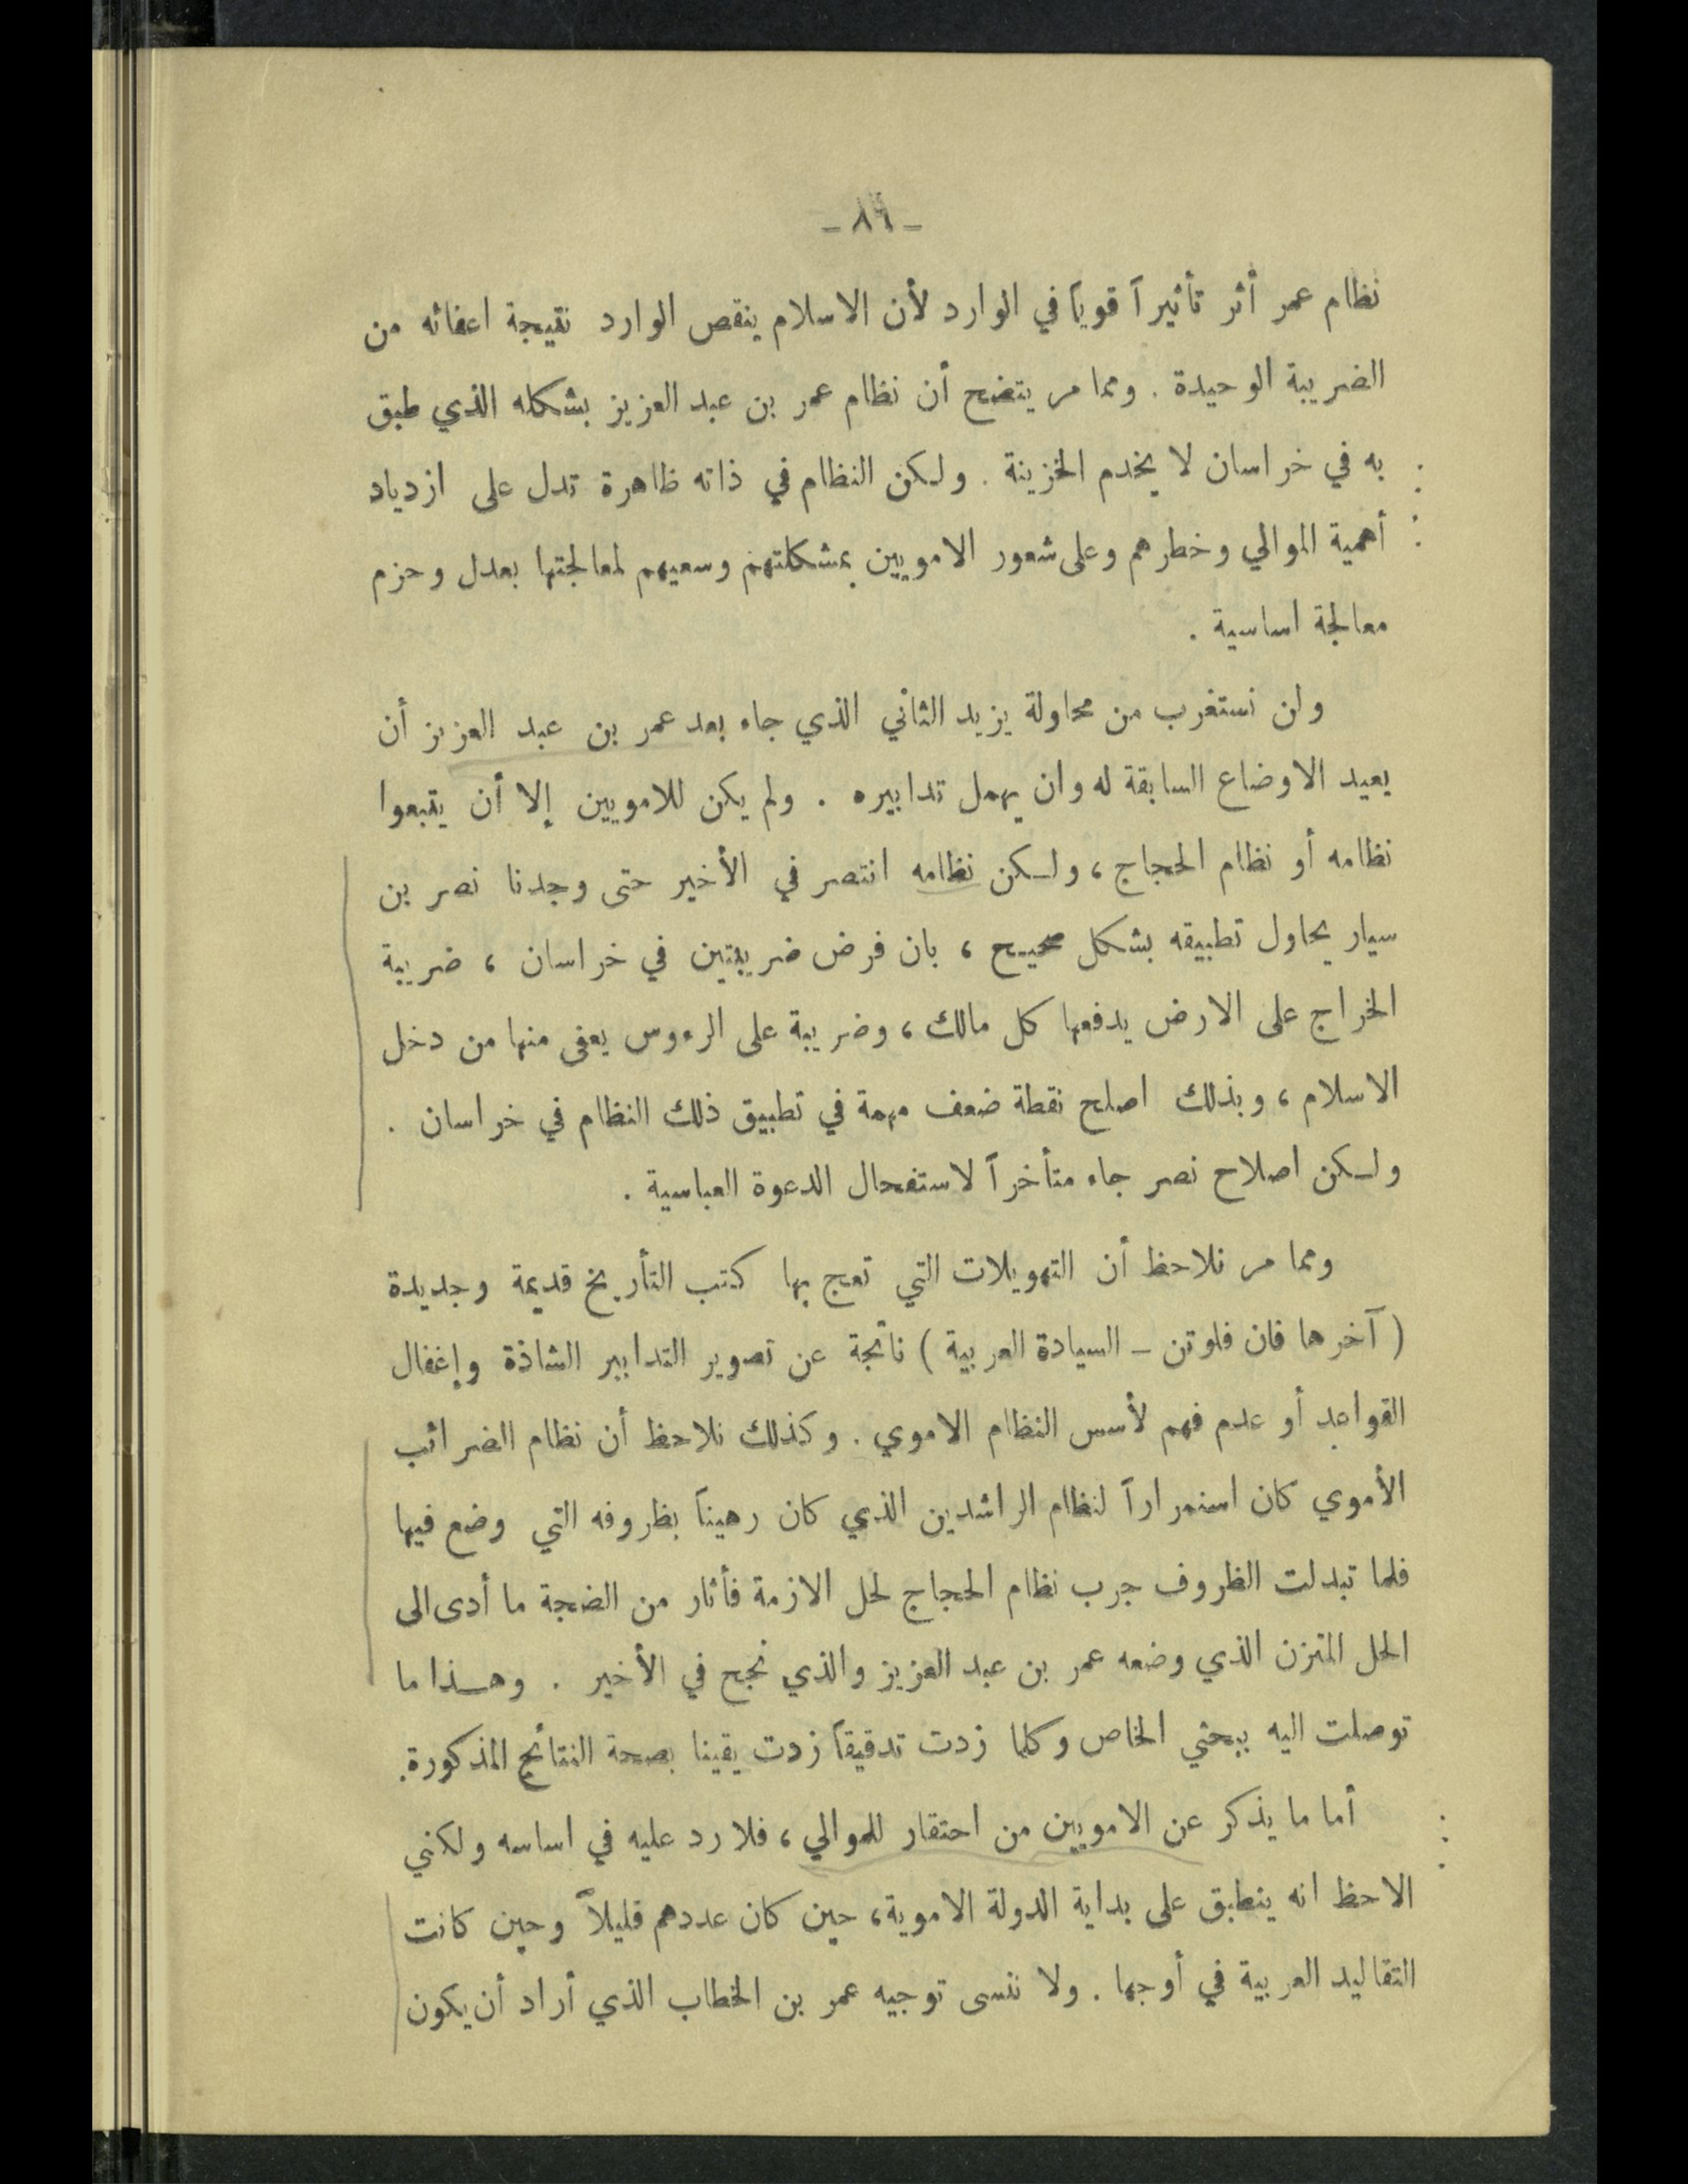 - ٨٦ -
نظام عمر أثر تأثيراً قوياً في الوارد لأن الاسلام ينقص الوارد نتيجة اعفائه من
الضريبة الوحيدة . ومما مر يتضح أن نظام عمر بن عبد العزيز بشكله الذي طبق
به في خراسان لا يخدم الخزينة . ولكن النظام في ذاته ظاهرة تدل على ازدياد
أهمية الموالي وخطرهم وعلى شعور الامويين بمشكلتهم وسعيهم لمعالجتها بعدل وحزم
معالجة اساسية .
ولن نستغرب من محاولة يزيد الثاني الذي جاء بعد عمر بن عبد العزيز أن
يعيد الاوضاع السابقة له وان يهمل تدابيره . ولم يكن للامويين إلا أن يتبعوا
نظامه أو نظام الحجاج ، ولكن نظامه انتصر في الأخير حتى وجدنا نصر بن
سيار يحاول تطبيقه بشكل صحيح ، بان فرض ضريبتين في خراسان ، ضريبة
الخراج على الارض يدفعها كل مالك ، وضريبة على الرءوس يعفى منها من دخل
الاسلام ، وبذلك اصلح نقطة ضعف مهمة في تطبيق ذلك النظام في خراسان .
ولكن اصلاح نصر جاء متأخراً لاستفحال الدعوة العباسية .
ومما مر نلاحظ أن التهويلات التي تعج بها كتب التأريخ قديمة وجديدة
( آخرها فان فلوتن - السيادة العربية ) ناتجة عن تصوير التدابير الشاذة وإغفال
القواعد أو عدم فهم لأسس النظام الاموي . وكذلك نلاحظ أن نظام الضرائب
الأموي كان استمراراً لنظام الراشدين الذي كان رهيناً بظروفه التي وضع فيها
فلما تبدلت الظروف جرب نظام الحجاج لحل الازمة فأثار من الضجة ما أدى الى
الحل المتزن الذي وضعه عمر بن عبد العزيز والذي نجح في الأخير . وهذا ما
توصلت اليه ببحثي الخاص وكلما زدت تدقيقاً زدت يقينا بصحة النتائج المذكورة.
أما ما يذكر عن الامويين من احتقار للموالي ، فلا رد عليه في اساسه ولكني
الاحظ انه ينطبق على بداية الدولة الاموية، حين كان عددهم قليلاً وحين كانت
التقاليد العربية في أوجها . ولا ننسى توجيه عمر بن الخطاب الذي أراد أن يكون